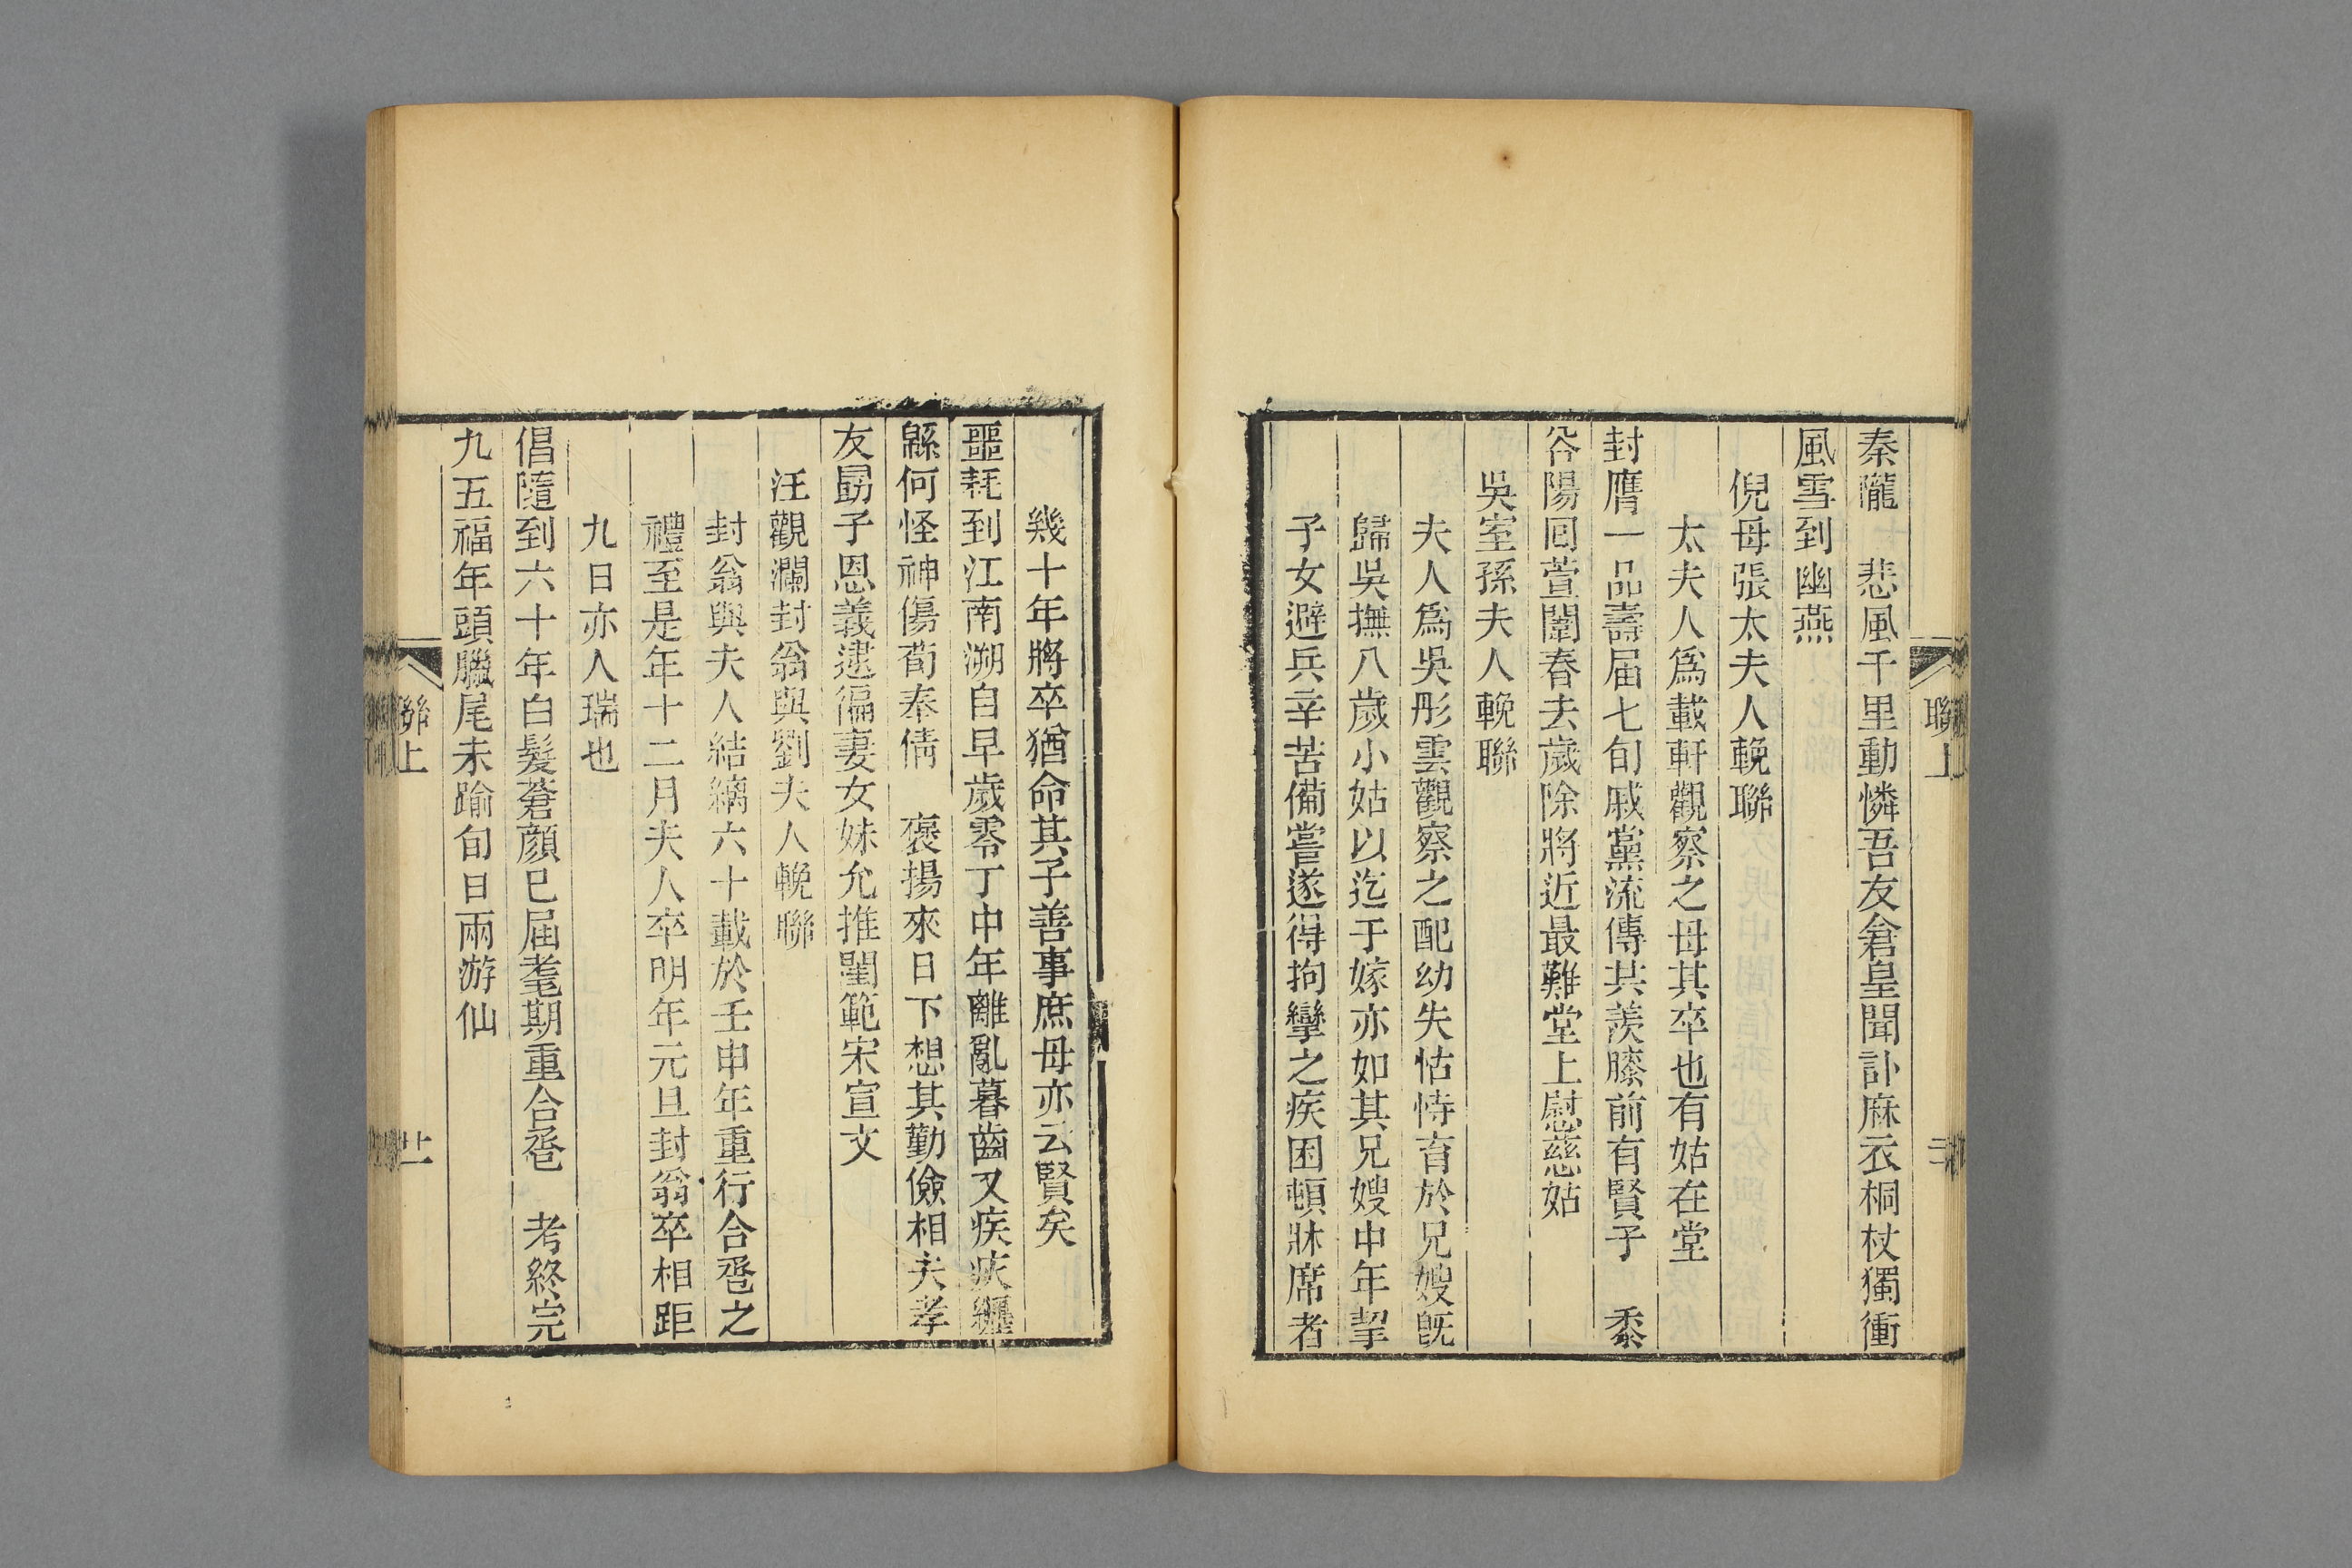 秦隴　悲風千里動憐吾友倉皇聞訃麻衣桐杖獨衝
風雪到幽燕
倪母張太夫人輓聯
太夫人爲載軒觀察之母其卒也有姑在堂
封膺一品壽届七旬戚黨流傳共羨膝前有賢子　黍
谷陽回萱闈春去歲除將近最難堂上慰慈姑
吳室孫夫人輓聯
夫人爲吳彤雲觀察之配幼失怙恃育於兄嫂旣
歸吳撫八歲小姑以迄于嫁亦如其兄嫂中年挈
子女避兵辛苦備嘗遂得拘攣之疾困頓牀席者
聯上
幾十年將卒猶命其子善事庶母亦云賢矣
噩耗到江南溯自早歲零丁中年離亂暮齒又疾疢纏
緜何怪神傷荀奉倩　褒揚來日下想其勤儉相夫孝
友勗子恩義逮徧妻女妹允推閨範宋宣文
汪觀瀾封翁與劉夫人輓聯
封翁與夫人結縭六十載於壬申年重行合巹之
禮至是年十二月夫人卒明年元旦封翁卒相距
九日亦人瑞也
倡隨到六十年白髮蒼顔已屆耄期重合巹　考終完
九五福年頭臘尾未踰旬日兩游仙
聯上
廿一